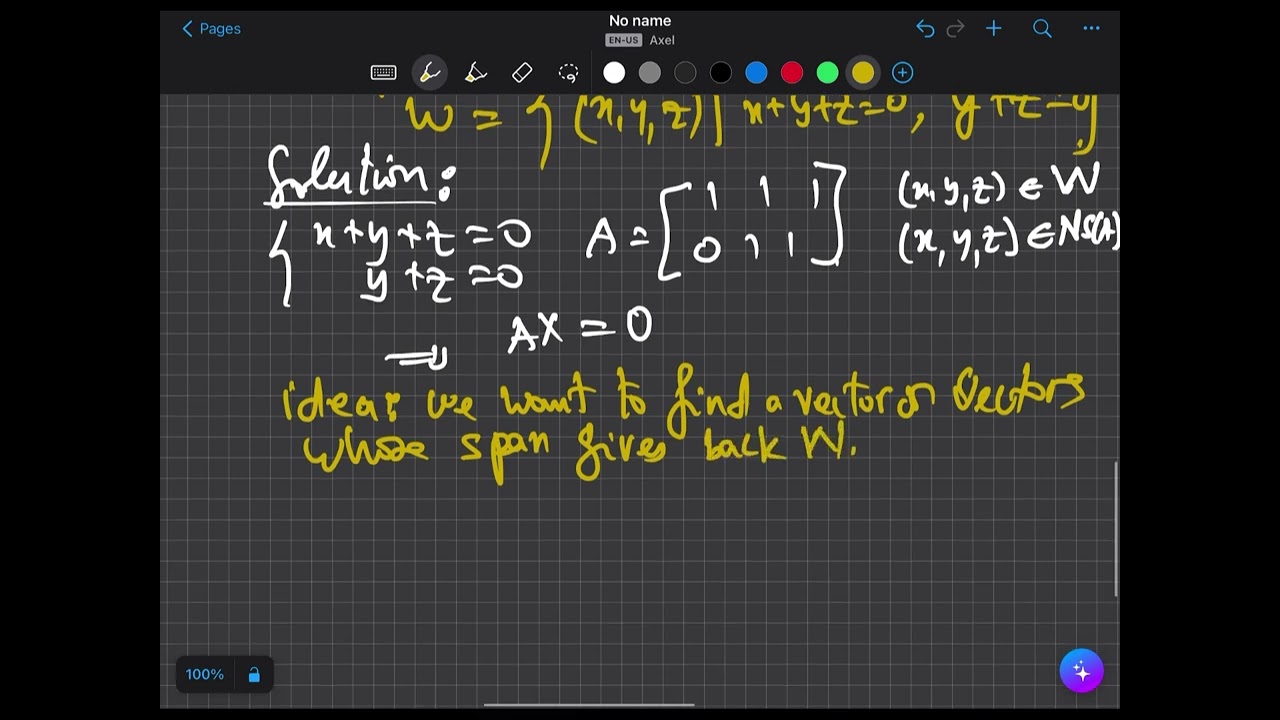 Pages
No name
EN-US Axel
W = { (x,y,z) | x+y+z=0, y+z=0}
Solution:
{ x+y+z=0
y+z=0
A = [ 1 1 1
0 1 1 ]
(x,y,z) ∈ W
(x,y,z) ∈ NS(A)
⇒ AX = 0
idea: we want to find a vector or vectors
whose span gives back W.
100%